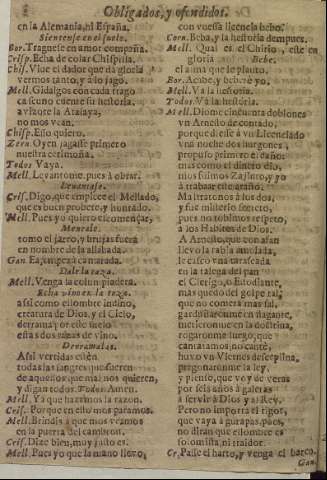 Obligados, y ofendidos.
en la Alemania, ni España.
Sientense en el suelo.
Bor. Traguese en amor compaña.
Crisp. Echa de colar Chispilla.
Chis. Viue el dador que da gloria
vermos tanto, y a lo jago.
Mell. Gidalgos con cada trago
ca vno cuente su hestoria.
no mos vean.
Chisp. Esso quiero.
Zern. Oyen jagasse primero
nuestra cerimoña.
Todos Vaya.
Mell. Leuantome, pues à obrar.
Leuantase.
Cris. Digo, que empiece el Mellado,
que es buen probete, y honrado.
Mell. Pues yo quiero escomençar,
tomo el jarro, y
en nombre de la
Gan. Ea, empeça camarada.
Dale la taza.
Mell. Venga la colum piadera.
Echa vino en la taza.
assi como el hombre indino,
creatura de Dios, y el Cielo,
derrama por este suelo
estas dos tazas de vino.
Derramalas.
Assi vertidas estèn
todas las sangres que fueren
de aquellos que mal nos quieren,
y digan todos. Todos. Amen.
Mell. Ya que hazemos la razon.
Cris. Porque en esto mos paramos.
Mell. Brindis a que mos veamos
en la puerta del cambron.
Cris. Dize bien, muy justo es.
Mell. Pues yo que la mano lleuo,
con vuessa licencia bebo.
Corn. Beba, y la hestoria despues.
Mell. Qual es el Chirio, este en
gloria Bebe.
el alma que le planto.
Bor. Acabe, y beberè yo.
Mell. Và la hestoria.
Todos. Và la hestoria.
Mell. Diome cincuenta doblones
vn Arnesto de contado,
porque diesse à vn Licenciado
vna noche dos jurgones,
propuso primero el daño;
mas como el dinero dio,
mos fuimos Zajinto, y yo
à trabaxar este araño.
Matitaronos à los dos,
y fue misterio secreto,
pues no toblimos respeto,
à los Habitos de Dios.
A Arnesto, que con afan
lleuo la rabia
le casco vna tarascada
en la talega del pan
el Clerigo, o Estudiante,
mas quedo del golpe tal,
que no comerà mas sal.
metieronme en la dotrina,
rogaronme luego, que
cantaramos, no cantè,
huuo vn Viernes descrplina,
pregonaronme la ley,
y pienso, que voy de veras
por seis años à galeras
à servir à Dios y al Rey.
Pero no importa el rigor,
que vaya à gurapas, pues,
no diran que el hombre es
somista, ni traidor.
Cr. Passe el harto, y venga el barco.
Gan.